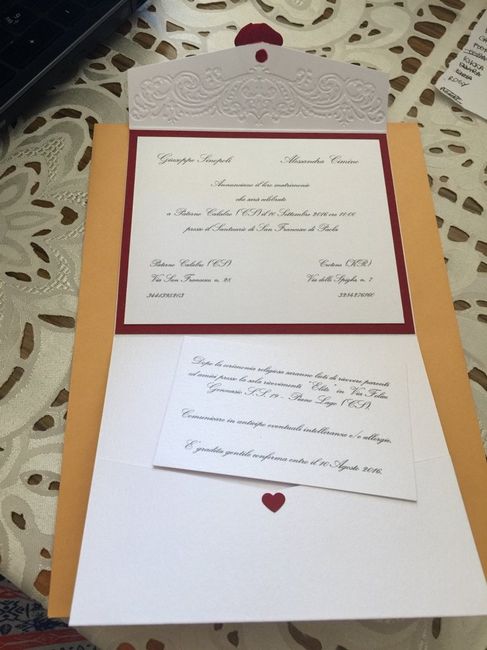 Giuseppe Sinopoli Alessandra Cimino
Annunciano il loro matrimonio
che sarà celebrato
a Paterno Calabro (CS) il 10 Settembre 2016 ore 11:00
presso il Santuario di San Francesco di Paola
Paterno Calabro (CS) Crotone (KR)
Via San Francesco n. 28 Via delle Spighe n. 7
Dopo la cerimonia religiosa saranno lieti di ricevere parenti
ed amici presso la sala ricevimenti "Elite" in Via Felm
Gennasio S.S. 19 - Piano Lago (CS).
Comunicare in anticipo eventuali intolleranze e/o allergie.
E' gradita gentile conferma entro il 10 Agosto 2016.